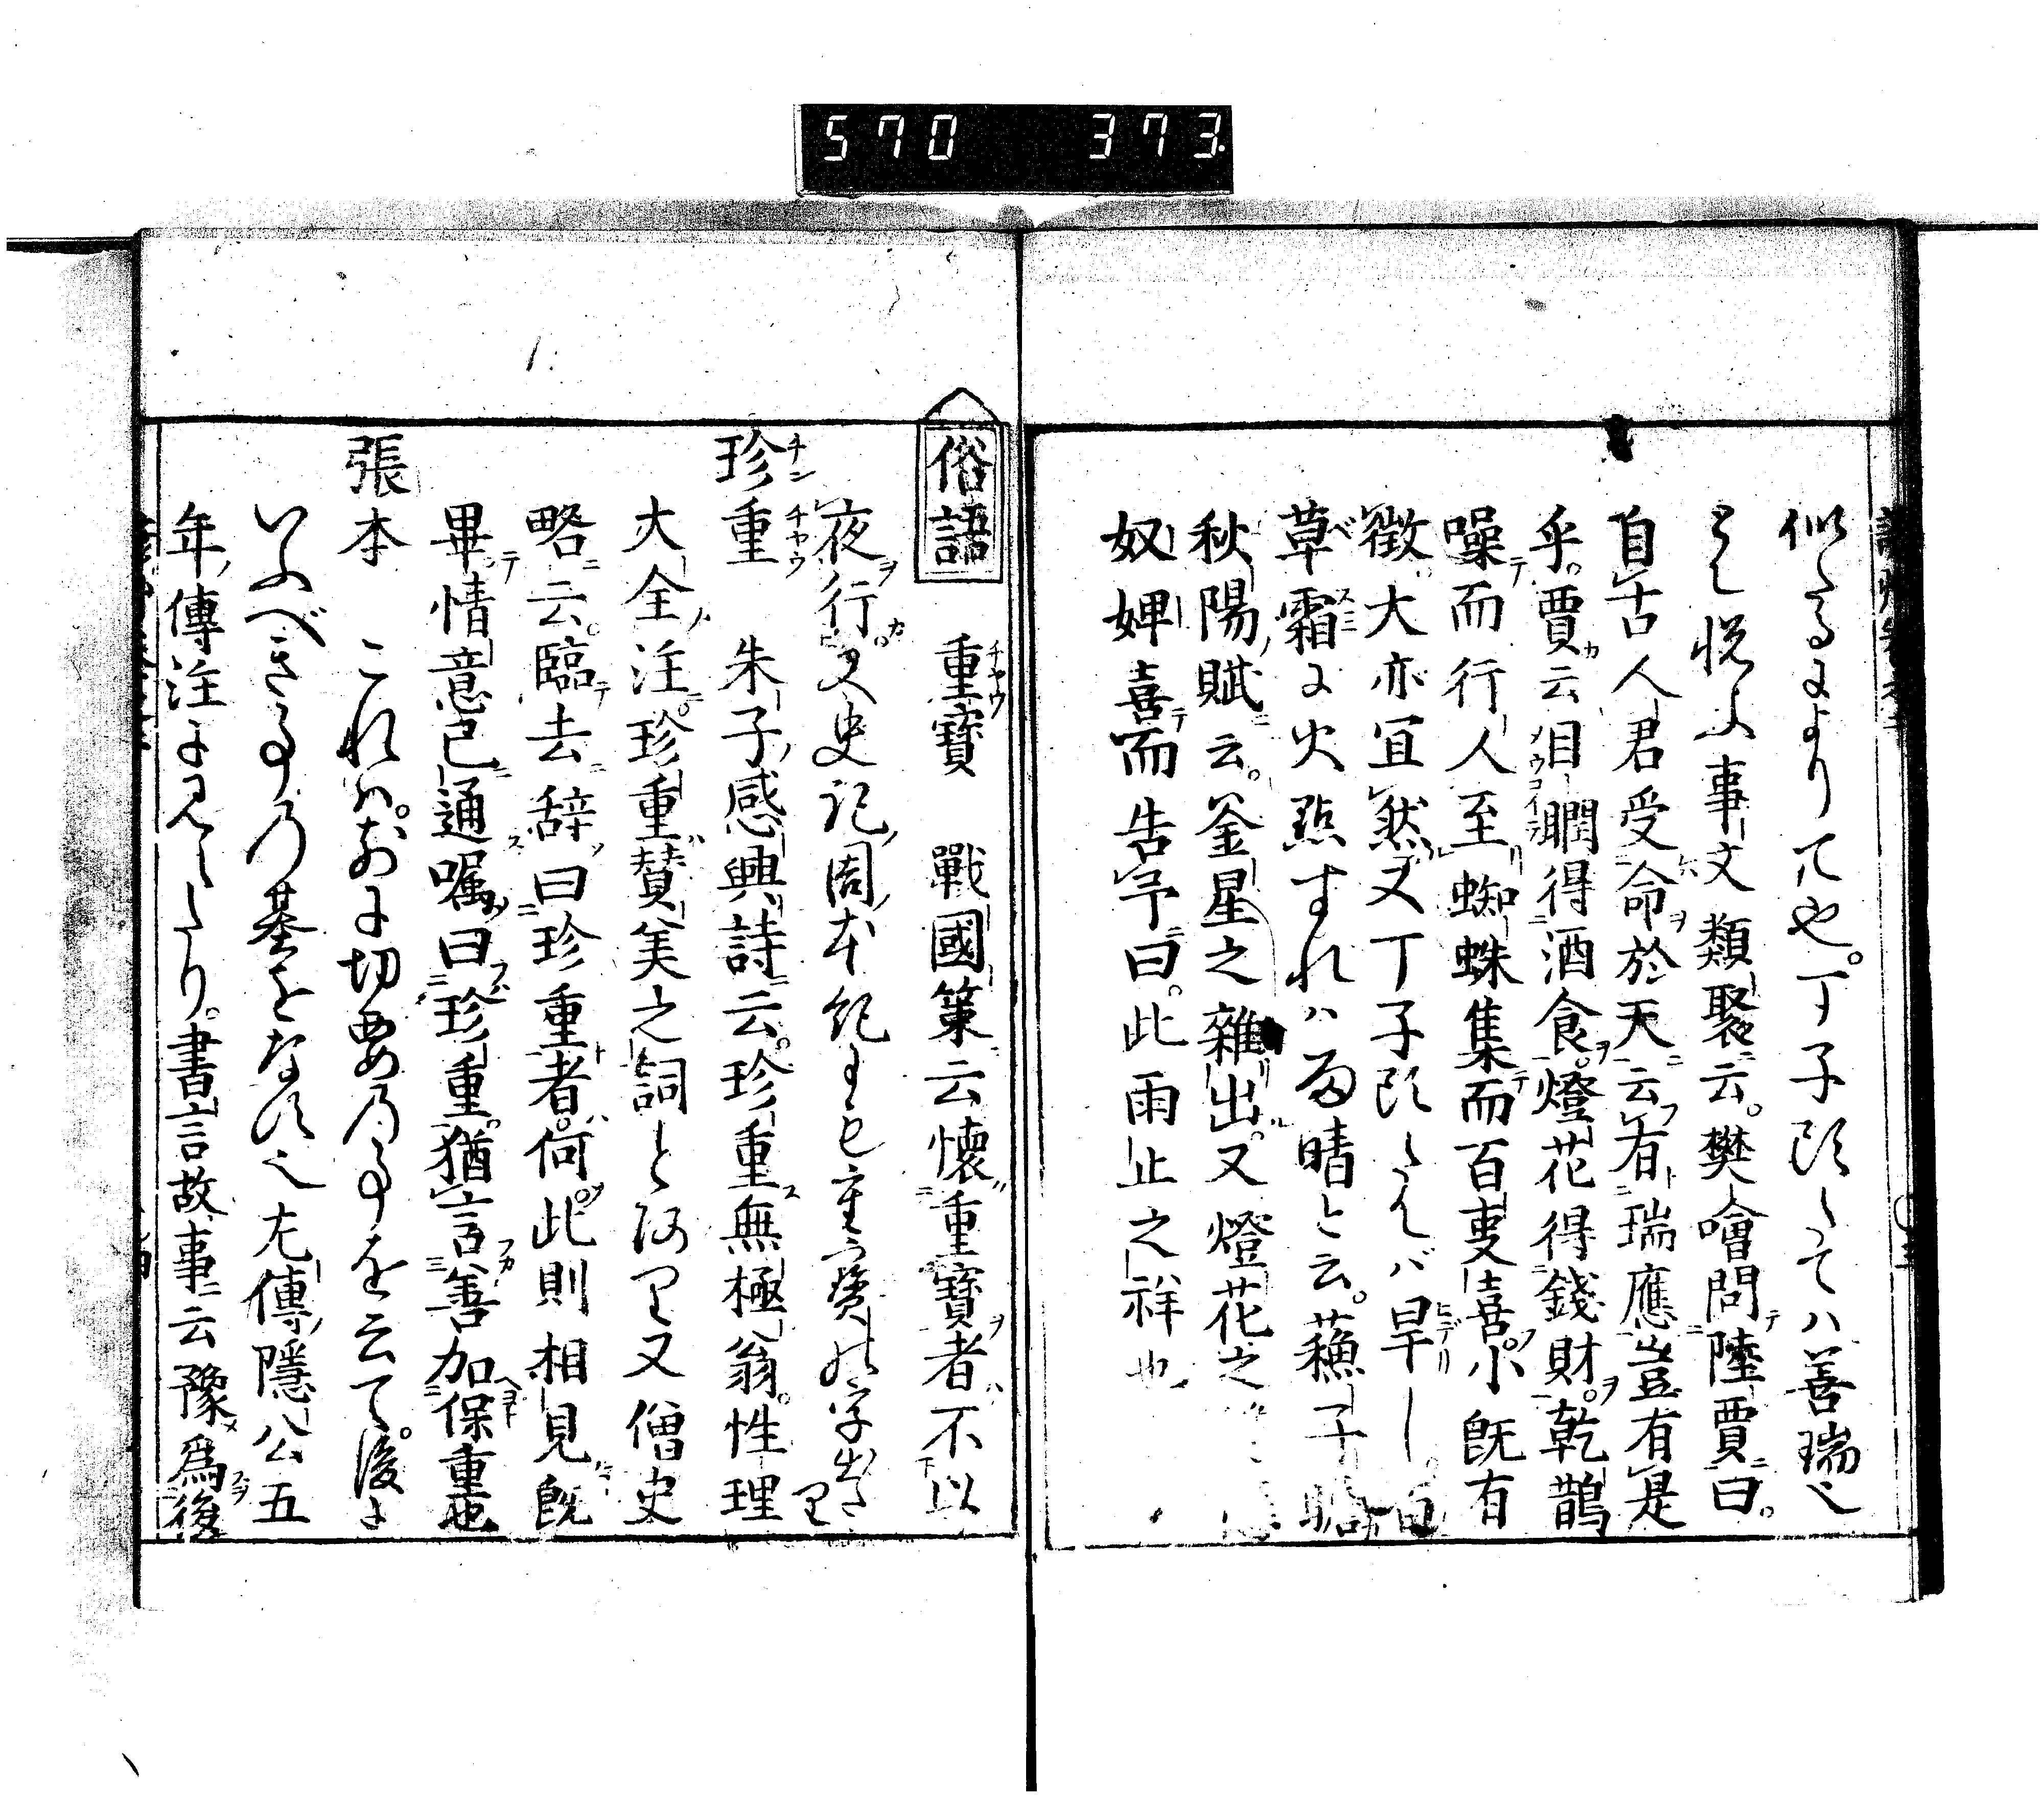 570 373
似たるによりて也。丁子頭たては善瑞也
とて悦ふ事文類聚云。樊噲問陸賈曰。
自古人君受命於天云有瑞應豈有是
乎。賈云目瞤得酒食。燈花得錢財。乾鵲
噪而行人至蜘蛛集而百事喜。小既有
徵。大亦宜然又丁子頭たてバ旱し
草霜に火点すれハ雨晴と云。蘓子瞻
秋陽賦云。釜星之雜出。又燈花之
奴婢喜而告予曰。此雨止之祥也
俗語 重寶 戰國策云懷重寶者不以
夜行又史記周本紀にも重寳の字出たり
珍重 朱子感興詩云。珍重無極翁。性理
大全注珍重賛美之詞とあり又僧史
略云。臨去辞曰珍重者。何此則相見既
畢情意已通嘱曰珍重。猶言善加保重也
張本 これは。前に切要の事を云て。後に
いふべき事の基をなす也左傳隱公五
年傳注に見へたり。書言故事云豫爲後